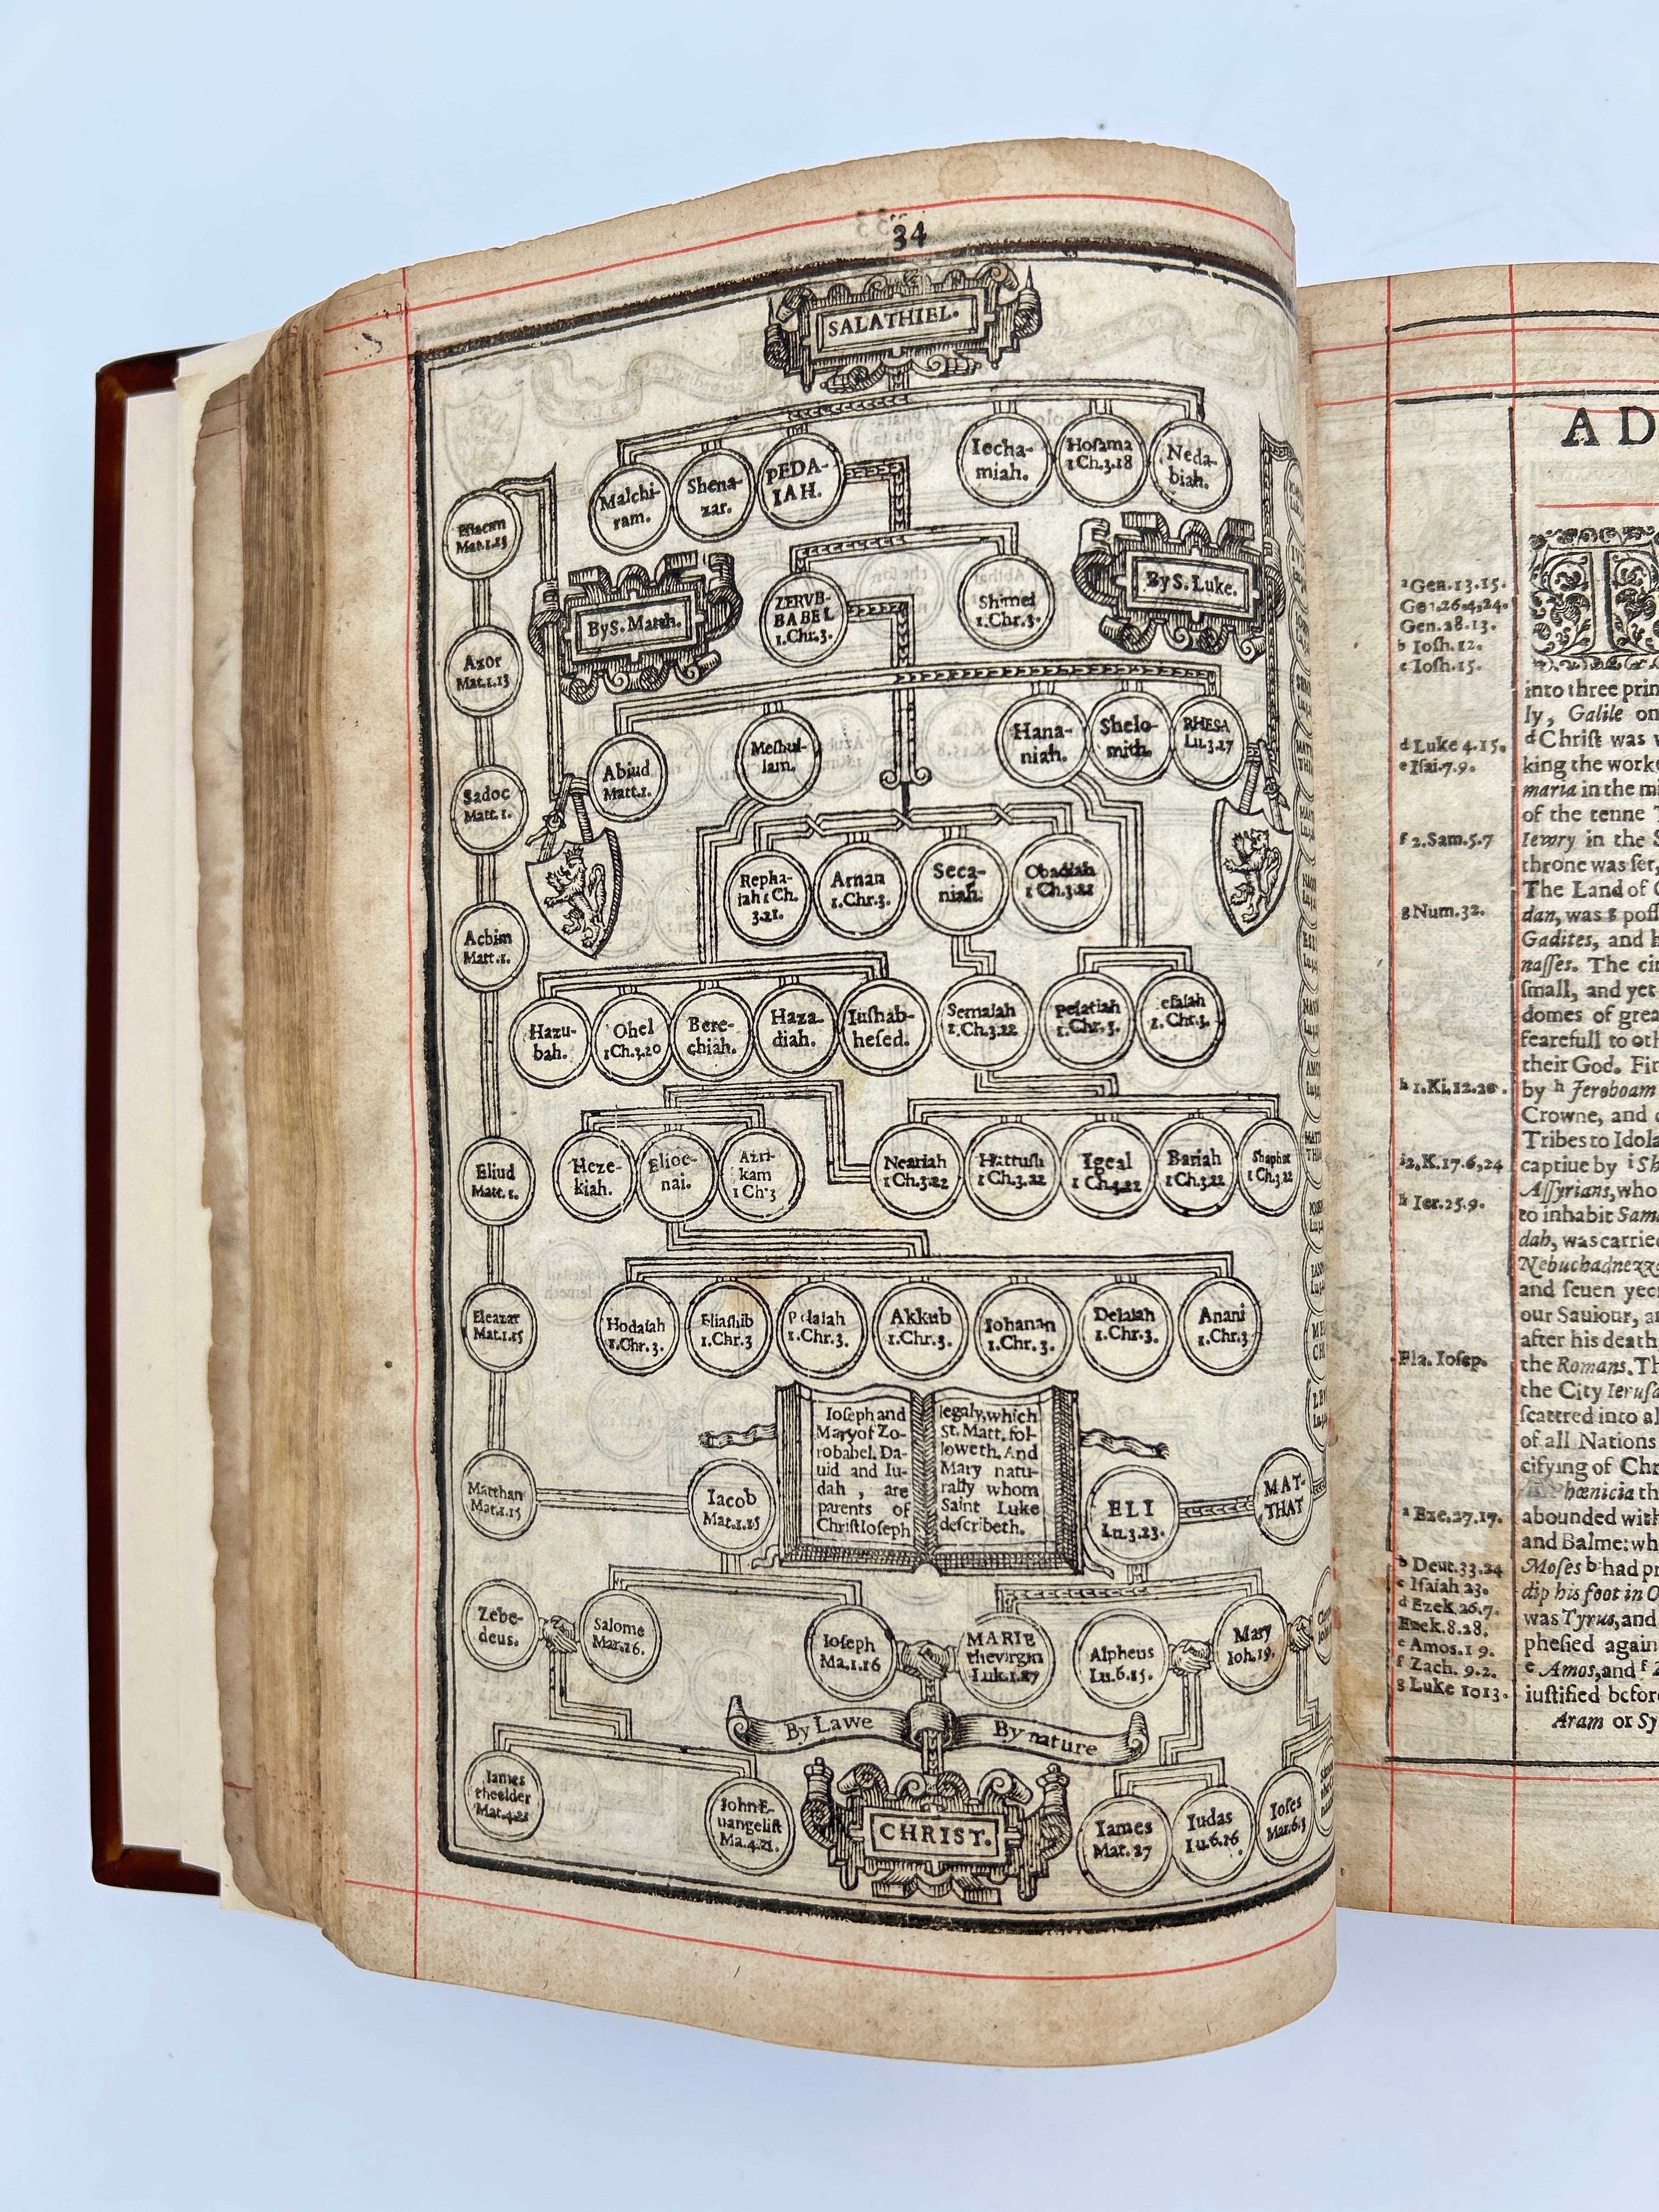 34
SALATHIEL.
Malchi-
ram.
Shena-
zar.
PEDA-
IAH.
Iecha-
miah.
Hoſama
1Ch.3.18
Neda-
biah.
Mat.1.13
By S. Matth.
ZERVB-
BABEL
1.Chr.3.
Shimei
1.Chr.3.
By S. Luke.
Azor
Mat.1.13
Abiud
Matt.1.
Meſhul-
lam.
Hana-
niah.
Shelo-
mith.
RHESA
Lu.3.27
Sadoc
Matt.1.
Repha-
iah 1 Ch.
3.21.
Arnan
1.Chr.3.
Seca-
niah.
Obadiah
1 Ch.3.21
Achim
Matt.1.
Hazu-
bah.
Ohel
1Ch.3.20
Bere-
chiah.
Haza-
diah.
Iuſhab-
heſed.
Semaiah
1.Ch.3.22
Pelatiah
1.Chr.3.
eſaiah
1.Chr.3.
Eliud
Matt.1.
Heze-
kiah.
Elioe-
nai.
Azri-
kam
1 Ch.3
Neariah
1Ch.3.22
Hattuſh
1Ch.3.22
Igeal
1 Ch.3.22
Bariah
1Ch.3.22
Shaphat
1Ch.3.22
Eleazar
Mat.1.15
Hodaiah
1.Chr.3.
Eliaſhib
1.Chr.3
Pelaiah
1.Chr.3.
Akkub
1.Chr.3.
Iohanan
1.Chr.3.
Delaiah
1.Chr.3.
Anani
1.Chr.3
Ioſeph and
Mary of Zo-
robabel. Da-
uid and Iu-
dah , are
parents of
Chriſt Ioſeph
legaly, which
St. Matt. fol-
loweth. And
Mary natu-
rally whom
Saint Luke
deſcribeth.
Matthan
Mat.1.15
Iacob
Mat.1.15
ELI
Lu.3.23.
MAT-
THAT
Zebe-
deus.
Salome
Mar.16.
Ioſeph
Ma.1.16
MARIE
the virgin
Luk.1.27
Alpheus
Lu.6.15.
Mary
Ioh.19.
By Lawe
By nature
Iames
the elder
Mat.4.21
Iohn E-
uangeliſt
Ma.4.21.
CHRIST.
Iames
Mat.27
Iudas
Lu.6.16
Ioſes
Mar.6.3
AD
ᵃGen.13.15.
Gen.26.4,24.
Gen.28.13.
ᵇ Ioſh.12.
ᶜ Ioſh.15.
ᵈ Luke 4.15.
ᵉ Iſai.7.9.
ᶠ 2.Sam.5.7
ᵍ Num.32.
ʰ 1.Ki.12.20.
ⁱ2.K.17.6,24
ᵏ Ier.25.9.
Fla. Ioſep.
ᵃ Eze.27.17.
ᵇ Deut.33.24
ᶜ Iſaiah 23.
ᵈ Ezek.26.7.
Ezek.8.28.
ᵉ Amos.1 9.
ᶠ Zach. 9.2.
ᵍ Luke 1013.
into three prin
ly, Galile on
ᵈChriſt was
king the worke
maria in the mi
of the tenne
Iewry in the
throne was ſet,
The Land of
dan, was ᵍ poſſ
Gadites, and
naſſes. The ci
ſmall, and yet
domes of grea
fearefull to oth
their God. Fir
by ʰ Jeroboam
Crowne, and
Tribes to Idola
captiue by ⁱ Sh
Aſſyrians, who
to inhabit Sam
dah, was carrie
Nebuchadnezz
and ſeuen yee
our Sauiour, a
after his death
the Romans. Th
the City Ieruſ
ſcattred into al
of all Nations
cifying of Chr
Phœnicia th
abounded with
and Balme: wh
Moſes ᵇ had p
dip his foot in O
was Tyrus, and
pheſied again
ᵉ Amos, and ᶠ
iuſtified before
Aram or Sy